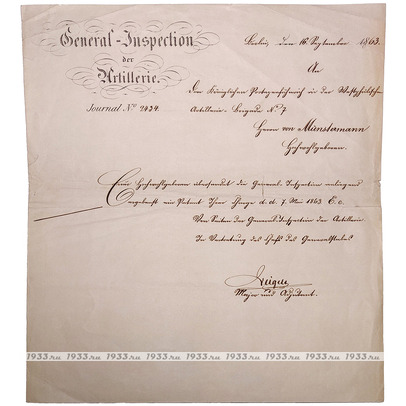 General-Inspection
der
Artillerie.
Journal No 2434.
Berlin, den 16 September 1863.
An
den Königlichen Portepeefähnrich in der Westphälischen
Artillerie-Brigade No. 7
Herrn von Münstermann
Hochwohlgeboren.
Euer Hochwohlgeboren übersendet die General-Inspection
ein Patent d. d. 7. Mai 1863
Von Seiten der General-Inspection der Artillerie.
In Vertretung des Chefs des Generalstabes
Major und Adjutant.
1933.ru 1933.ru 1933.ru 1933.ru 1933.ru 1933.ru 1933.ru 1933.ru 1933.ru